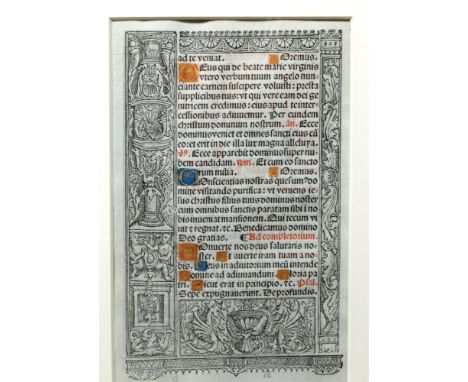 ad te veniat. Oremus.
Deus qui de beate marie virginis
vtero verbum tuum angelo nun
ciante carnem suscipere voluisti: presta
supplicibus tuis: vt qui vere eam dei ge
nitricem credimus: eius apud te inter-
cessionibus adiuuemur. Per eundem
christum dominum nostrum. añ. Ecce
dominus veniet et omnes sancti eius cũ
eo: et erit in die illa lux magna alleluya.
Ecce apparebit dominus super nu
bem candidam. Et cum eo sancto
rum milia. Oremus.
Conscientias nostras quesum⁹ do
mine visitando purifica: vt veniens ie-
sus christus filius tuus dominus noster
cum omnibus sanctis paratam sibi i no
bis inueniat mansionem. Qui tecum vi
uit et regnat. ⁊c. Benedicamus domino
Deo gratias. Ad completorium.
Conuerte nos deus salutaris no-
ster. Et auerte iram tuam a no-
bis. Deus in adiutorium meũ intende
Domine ad adiuuandum. Gloria pa
tri. Sicut erat in principio. ⁊c. Psal.
Sepe expugnauerunt. De profundis.